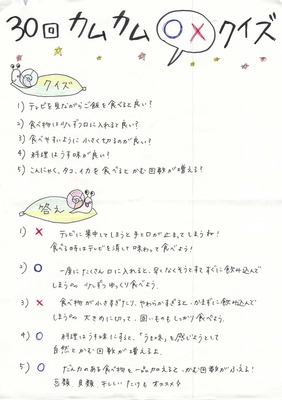 30回 カムカム ○×クイズ
クイズ
1) テレビを見ながらご飯を食べると良い?
2) 食べ物は少しずつ口に入れると良い?
3) 食べやすいように小さく切るのが良い?
4) 料理はうす味が良い?
5) こんにゃく、タコ、イカを食べるとかむ回数が増える?
答え
1) × テレビに集中してしまうと手と口が止まってしまうね!
食べる時はテレビを消して味わって食べよう!
2) ○ 一度にたくさん口に入れると、早くなくそうとしてすぐに飲み込んで
しまうね 少しずつゆっくり食べよう。
3) × 食べ物が小さすぎたり、やわらかすぎると、かまずに飲み込んで
しまうね 大きめに切って、固いものもしっかり食べよう。
4) ○ 料理はうす味にすると、「うま味」を感じようとして
自然とかむ回数が増えるよ
5) ○ だん力のある食べ物を一品加えると、かむ回数がふえる!
豆類、貝類、干ししいたけもオススメ